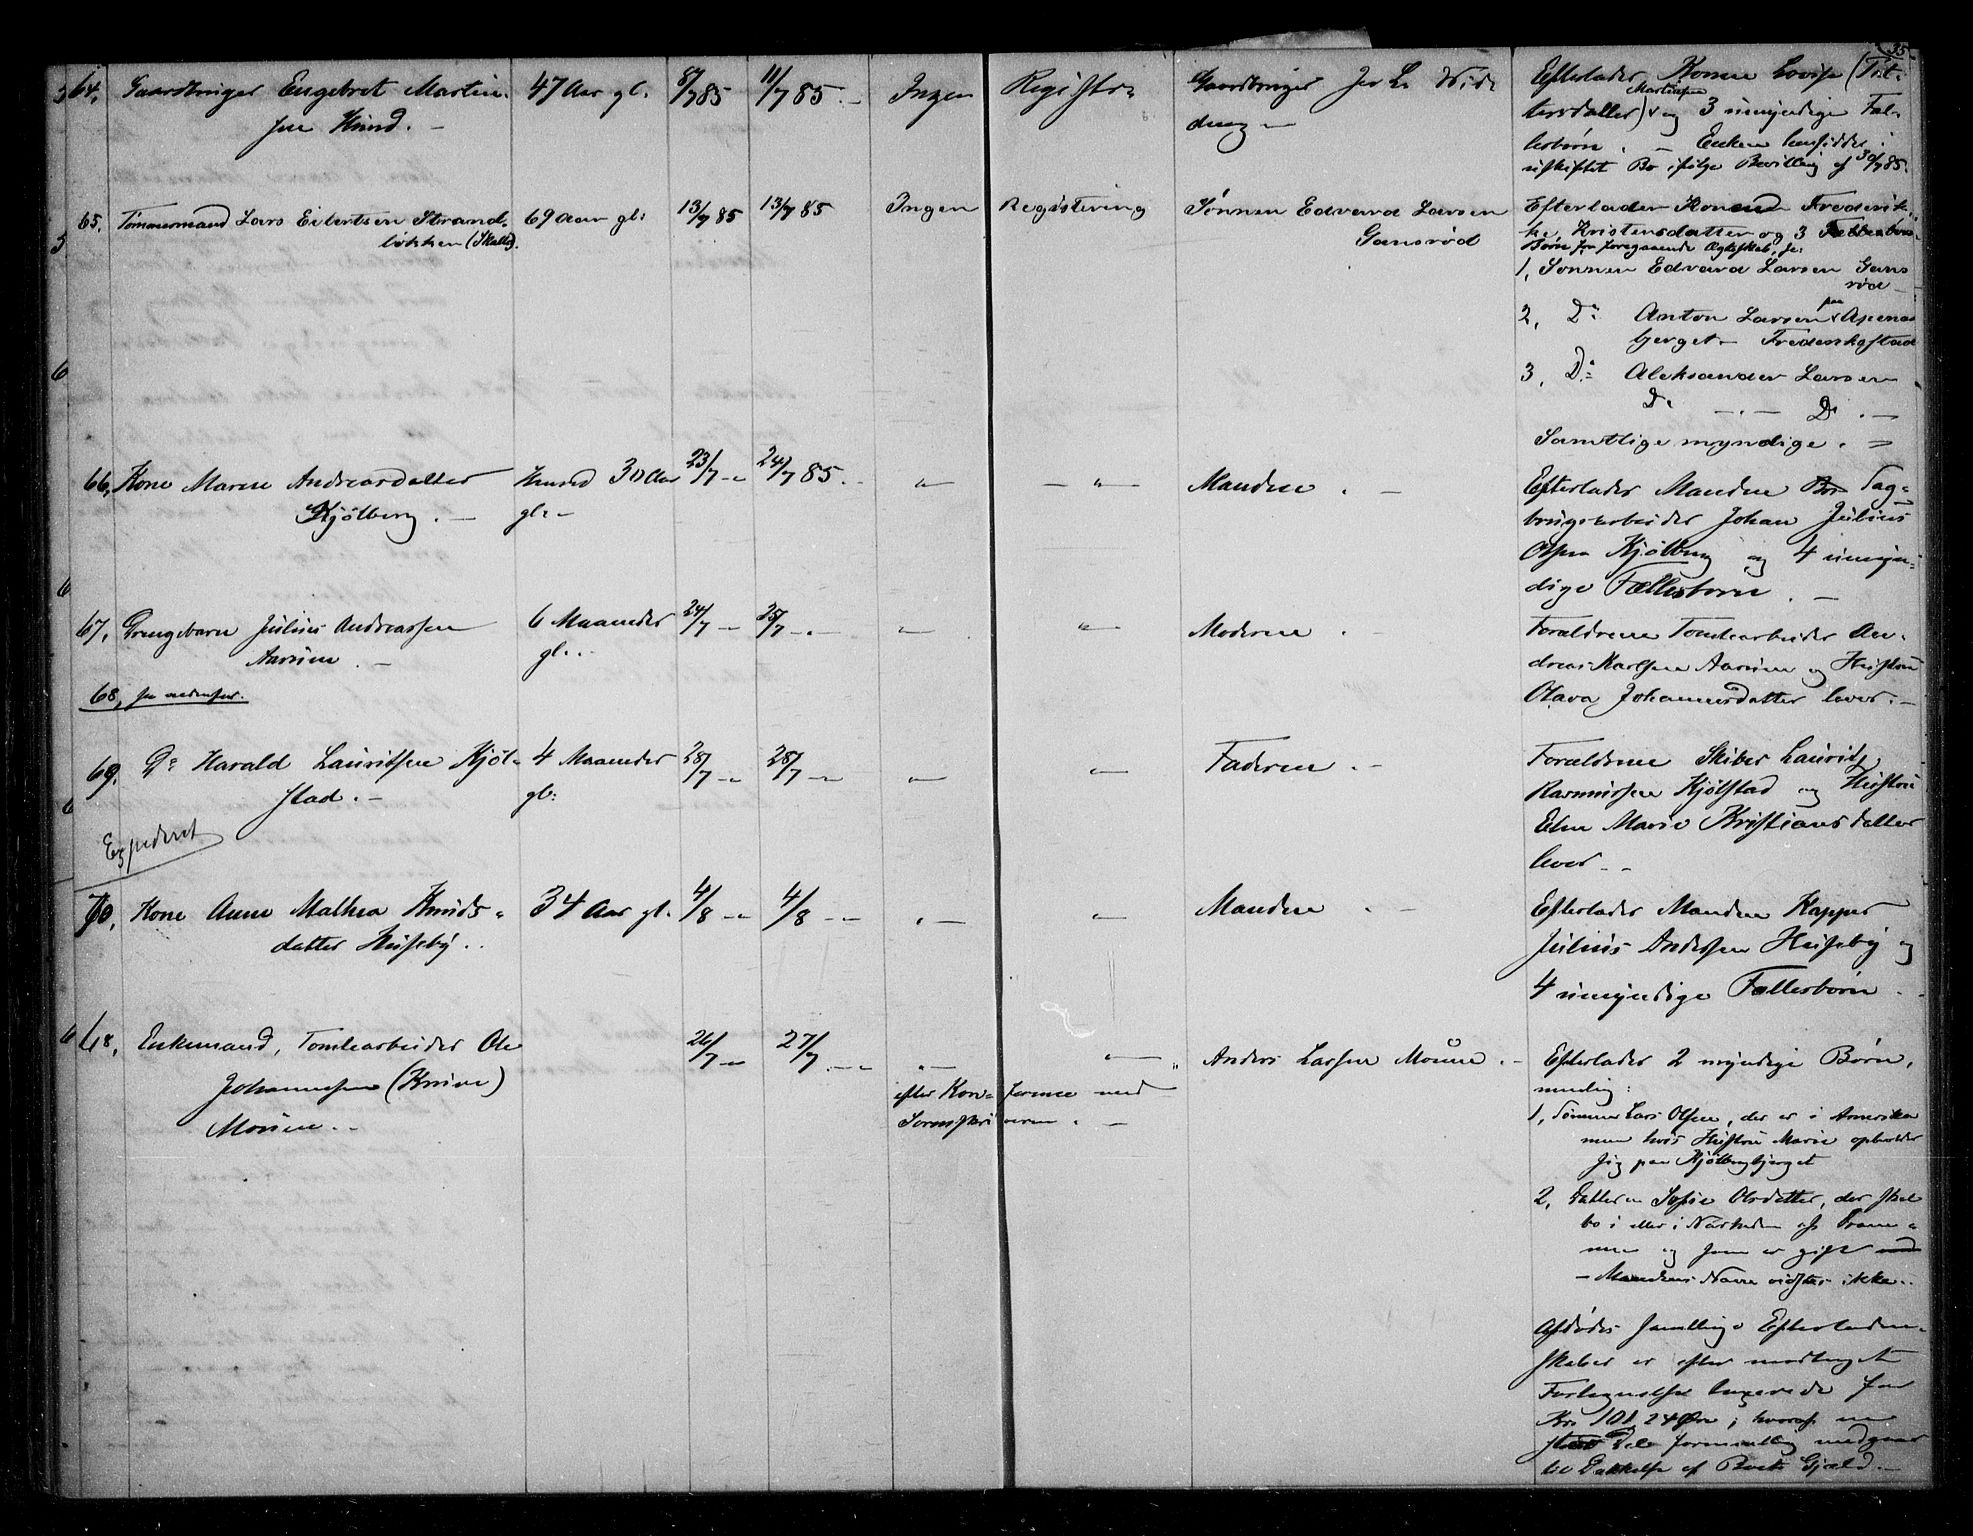 35
64, Gaardbruger Engebret Martin-
sen Hund. –
47 Aar gl.
8/7 85
11/7 85. –
Ingen Registr=
Gaardbruger
ding –
Efterlader Konen Lovise
Martinsen
og 3 umyndige Fæl-
lesbørn. – Enken hensidder i
uskiftet Bo ifølge Bevilling af 30/7 85.
65. Tømmermand Lars Eilertsen Strand-
løkken (Skalle).
69 Aar gl:
13/7 85
13/7 85
Ingen Registering
Sønnen Edvard Larsen
Gansrød
Efterlader Konen Frederik-
ke Kristensdatter og 3
Børn fra foregaaende Ægteskab, se:
1, Sønnen Edvard Larsen Gans
rød –
2, Do Anton Larsen paa
bjerget – Frederikstad
3, Do Aleksander Larsen
Do –.– Do . –
Samtlige myndige. =
66, Kone Maren Andreasdatter
Kjølberg. –
Hund 30 Aar
gl. –
23/7 –
24/7 85. –
„
– „ –
Manden . –
Efterlader Manden Sag-
brugsarbeider Johan Julius
Olsen Kjølberg og 4 umyn-
dige Fællesbørn . –
67, Drengebarn Julius Andreassen
Aarum . –
6 Maaneder
gl. .
24/7 –
25/7 – . –
„
„
Moderen . –
Forældrene Tomtearbeider An-
dreas Karlsen Aarum og Hustru
Olava Johannesdatter lever. –
68, se nedenfor.
69. Do Harald Lauritsen Kjøl-
stad. –
4 Maaneder
gl:
28/7 –
28/7 –
„
„
Faderen . –
Forældrene Skiber Laurits
Rasmussen Kjølstad og Hustru
Elen Marie Kristiansdatter
lever – –
Expederet
70, Kone Anne Mathea Knuds-
datter Huseby . .
34 Aar gl.
4/8 –
4/8 –
„
„
Manden . –
Efterlader Manden Kapper
Julius Andersen Huseby og
4 umyndige Fællesbørn .
68, Enkemand, Tomtearbeider Ole
Johannesen
Moum . –
26/7 –
27/7 . –
„
„
efter Konference med
Sorenskriveren . –
Anders Larsen Moum . –
Efterlader 2 myndige Børn,
nemlig:
1, Sønnen Lars Olsen, der er i Amerika
men hvis Hustru Marie opholder
sig paa Kjølbergbjerget
2, Datteren Sofie Olsdatter, der skal
bo i eller i Nærheden af Dram-
men og som er gift
– Mandens Navn vidstes ikke. .
Afdødes samtlige Efterladen-
skaber er efter modtaget
Fortegnelse angivede for
Kr. 101, 24 Øre, hvoraf en
stor Del formentlig medgaar
til Dækkelse af Boets Gjæld. –